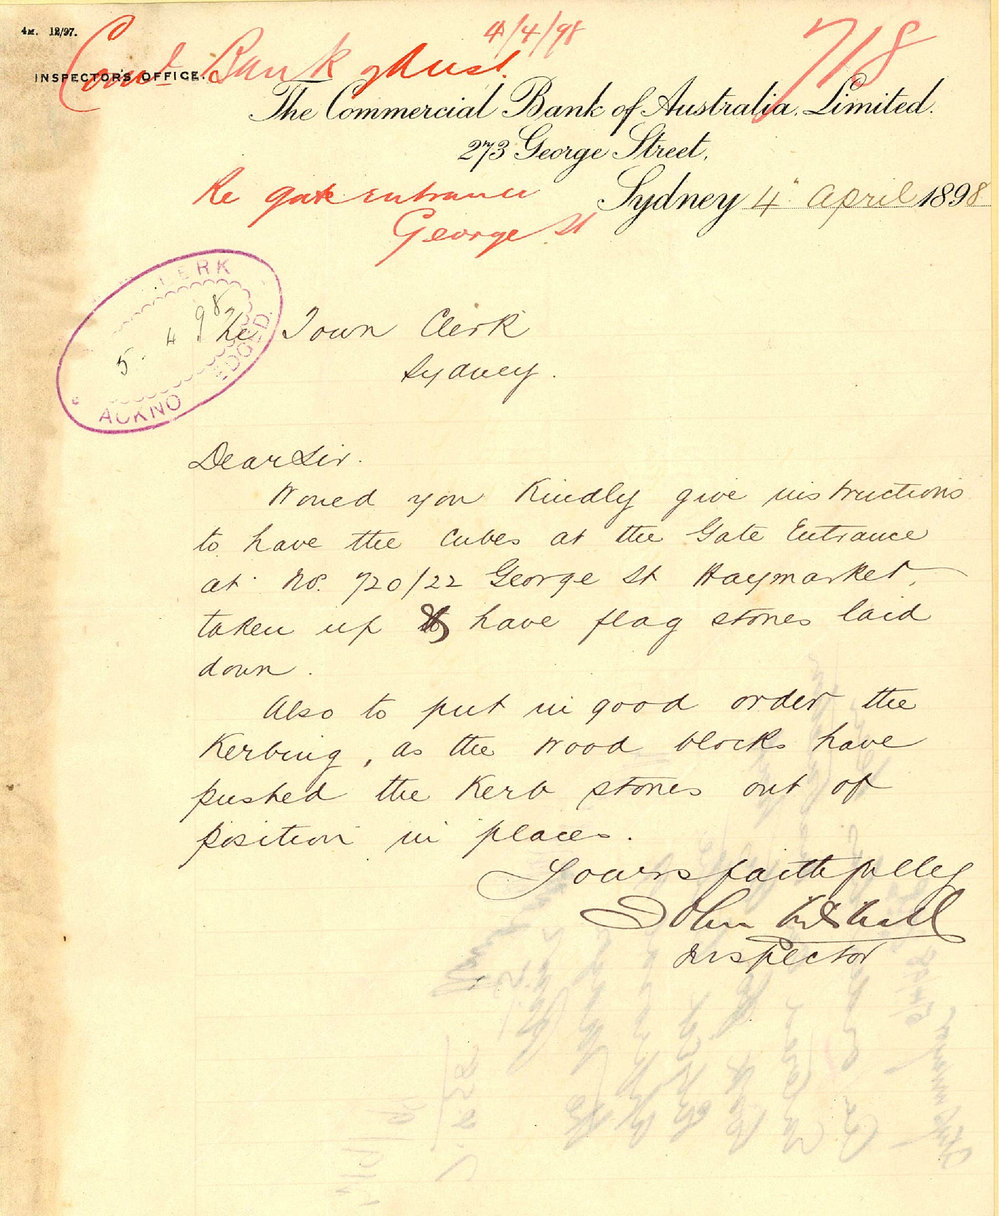 4M. 12/97.
4/4/98
718
Coml Bank of Aust.
INSPECTOR'S OFFICE.
The Commercial Bank of Australia, Limited.
273 George Street,
Re gate entrance
George St
Sydney 4" April 1898
CLERK
5. 4. 98
ACKNO EDGED.
The Town Clerk
Sydney.
Dear Sir.
Would you kindly give instructions
to have the cubes at the Gate Entrance
at No. 720/22 George St Haymarket,
taken up & have flag stones laid
down.
Also to put in good order the
Kerbing, as the wood blocks have
pushed the Kerb stones out of
position in places.
Yours faithfully
John
Inspector